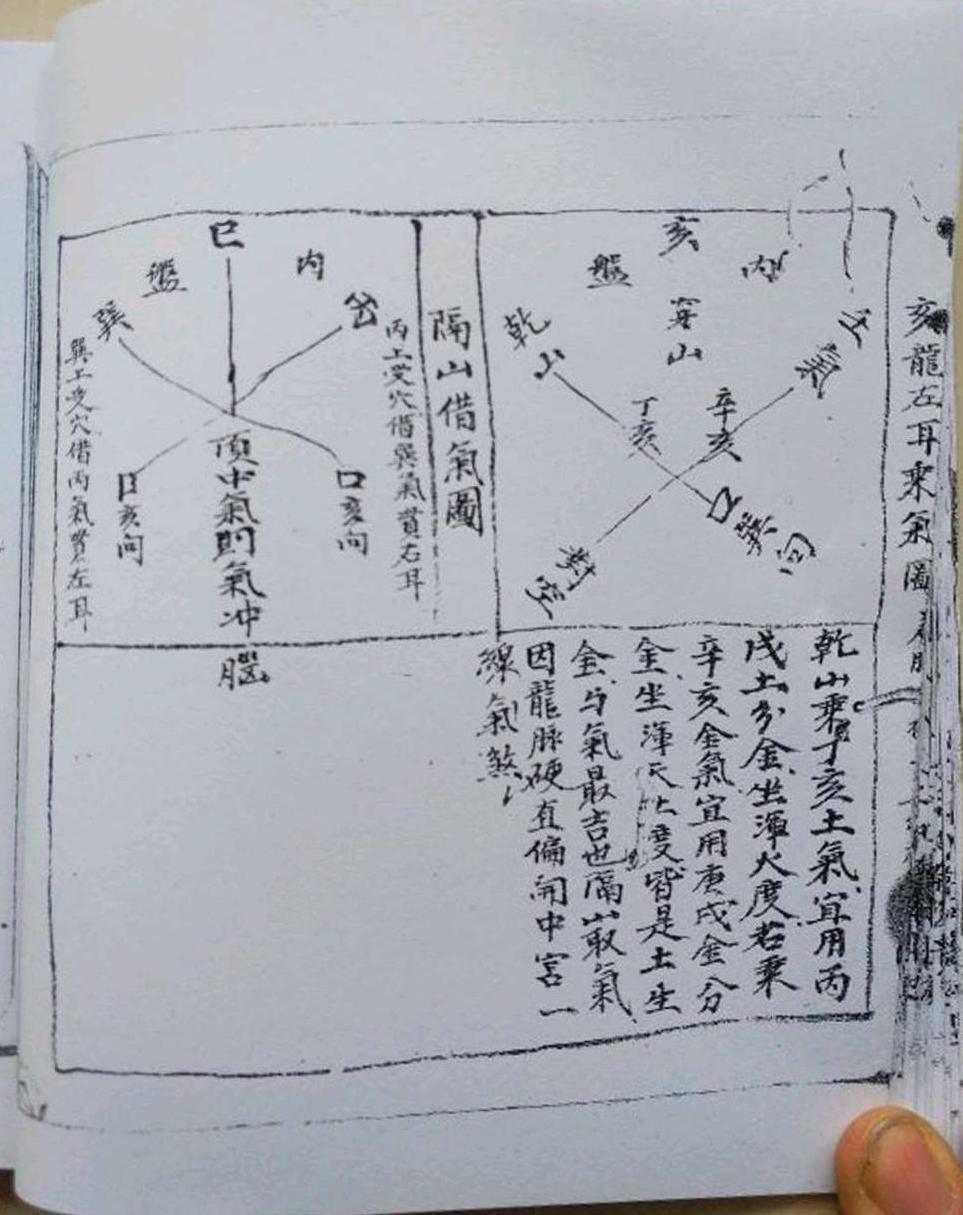 亥龍左耳乘氣圖
亥
內
盤
穿
山
乾山
壬氣
丁亥
辛亥
巽向
對空
乾山乘丁亥土氣宜用丙
戌土分金坐渾火度若乘
辛亥金氣宜用庚戌金分
金坐渾天土度皆是土生
金与氣最吉也隔山取氣
因龍脉硬直偏開中宮一
線氣煞
隔山借氣圖
巳
內
盤
巽
丙上受穴借巽氣貫右耳
亥向
頂中氣則氣冲腦
亥向
巽上受穴借丙氣貫左耳